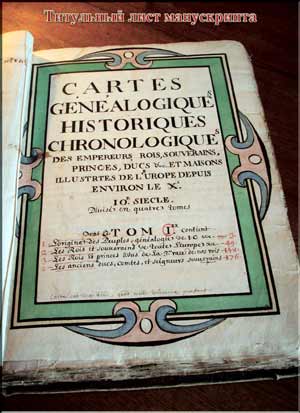 Титульный лист манускрипта
CARTES
GENEALOGIQUES
HISTORIQUES
CHRONOLOGIQUES
DES EMPEREURS ROIS, SOUVERAINS,
PRINCES, DUCS &c. ET MAISONS
ILLUSTRTES DE L'EUROPE DEPUIS
ENVIRON LE X.e
10.e SIECLE.
Divisée en quatre tomes
TOM I.er contient
1. L'origine des Peuples, généalogie de
2. Les Rois et souverains de toute l'Europe
3. Les Rois et princes issus de la
4. Les anciens ducs, comtes, et seigneurs souverains 176